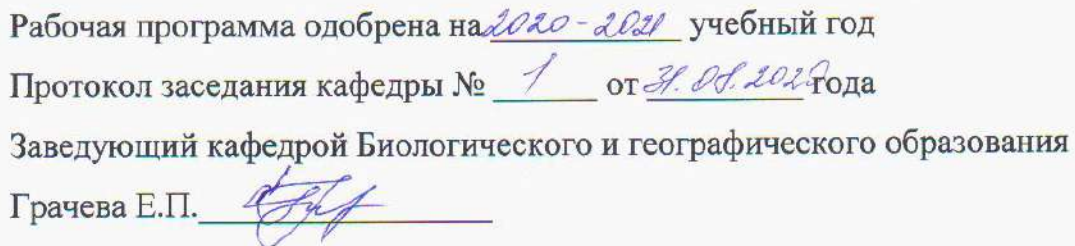 Рабочая программа одобрена на 2020-2021 учебный год
Протокол заседания кафедры № 1 от 31.08.2020 года
Заведующий кафедрой Биологического и географического образования
Грачева Е.П.